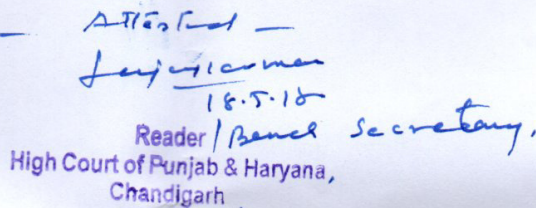 — Attested —
18.5.18
Reader / Bench Secretary,
High Court of Punjab & Haryana,
Chandigarh